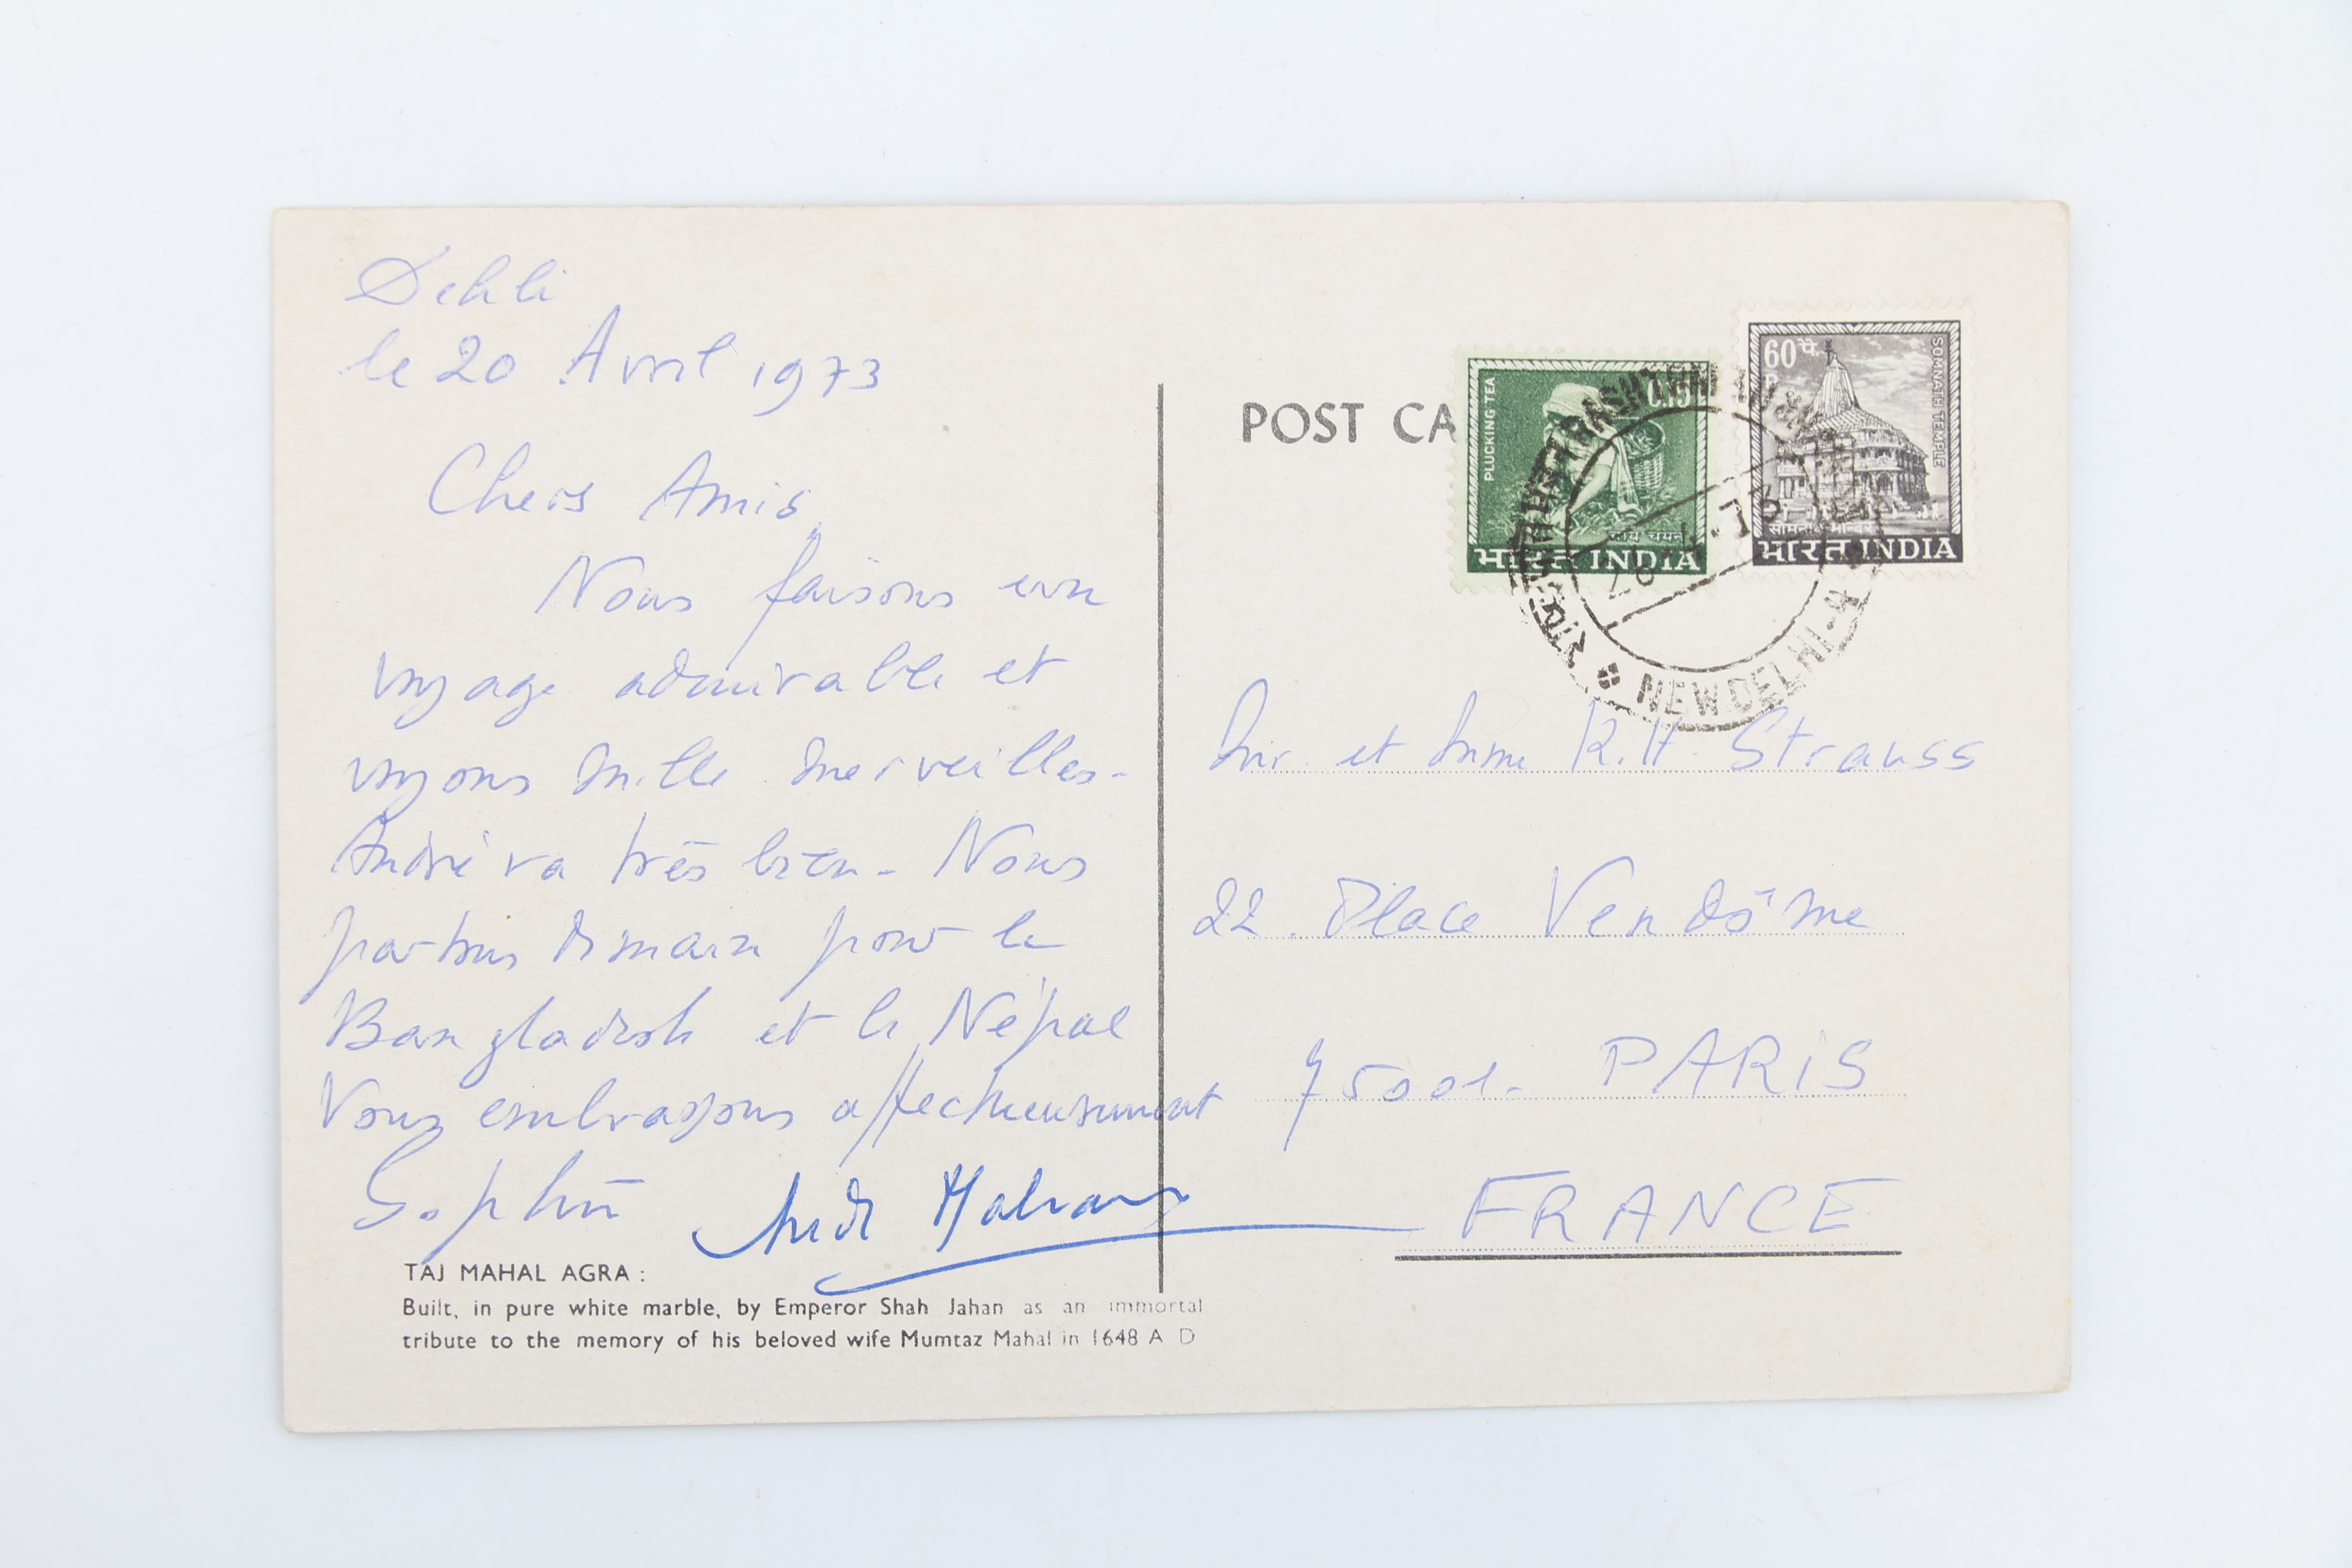 Dehli
le 20 Avril 1973
Chers Amis,
Nous faisons un
voyage admirable et
voyons mille merveilles-
André va très bien - Nous
partons demain pour le
Bangladesh et le Népal
Vous embrassons affectueusement
Sophie André Malraux
TAJ MAHAL AGRA :
Built, in pure white marble, by Emperor Shah Jahan as an immortal
tribute to the memory of his beloved wife Mumtaz Mahal in 1648 A D
POST CA
PLUCKING TEA
0.15
चाय चयन
भारत INDIA
60 पै.
P
SOMNATH TEMPLE
सोमनाथ मन्दिर
भारत INDIA
NEW DELHI-4
Mr. et Mme R.H Strauss
22. Place Vendôme
75001- PARIS
FRANCE